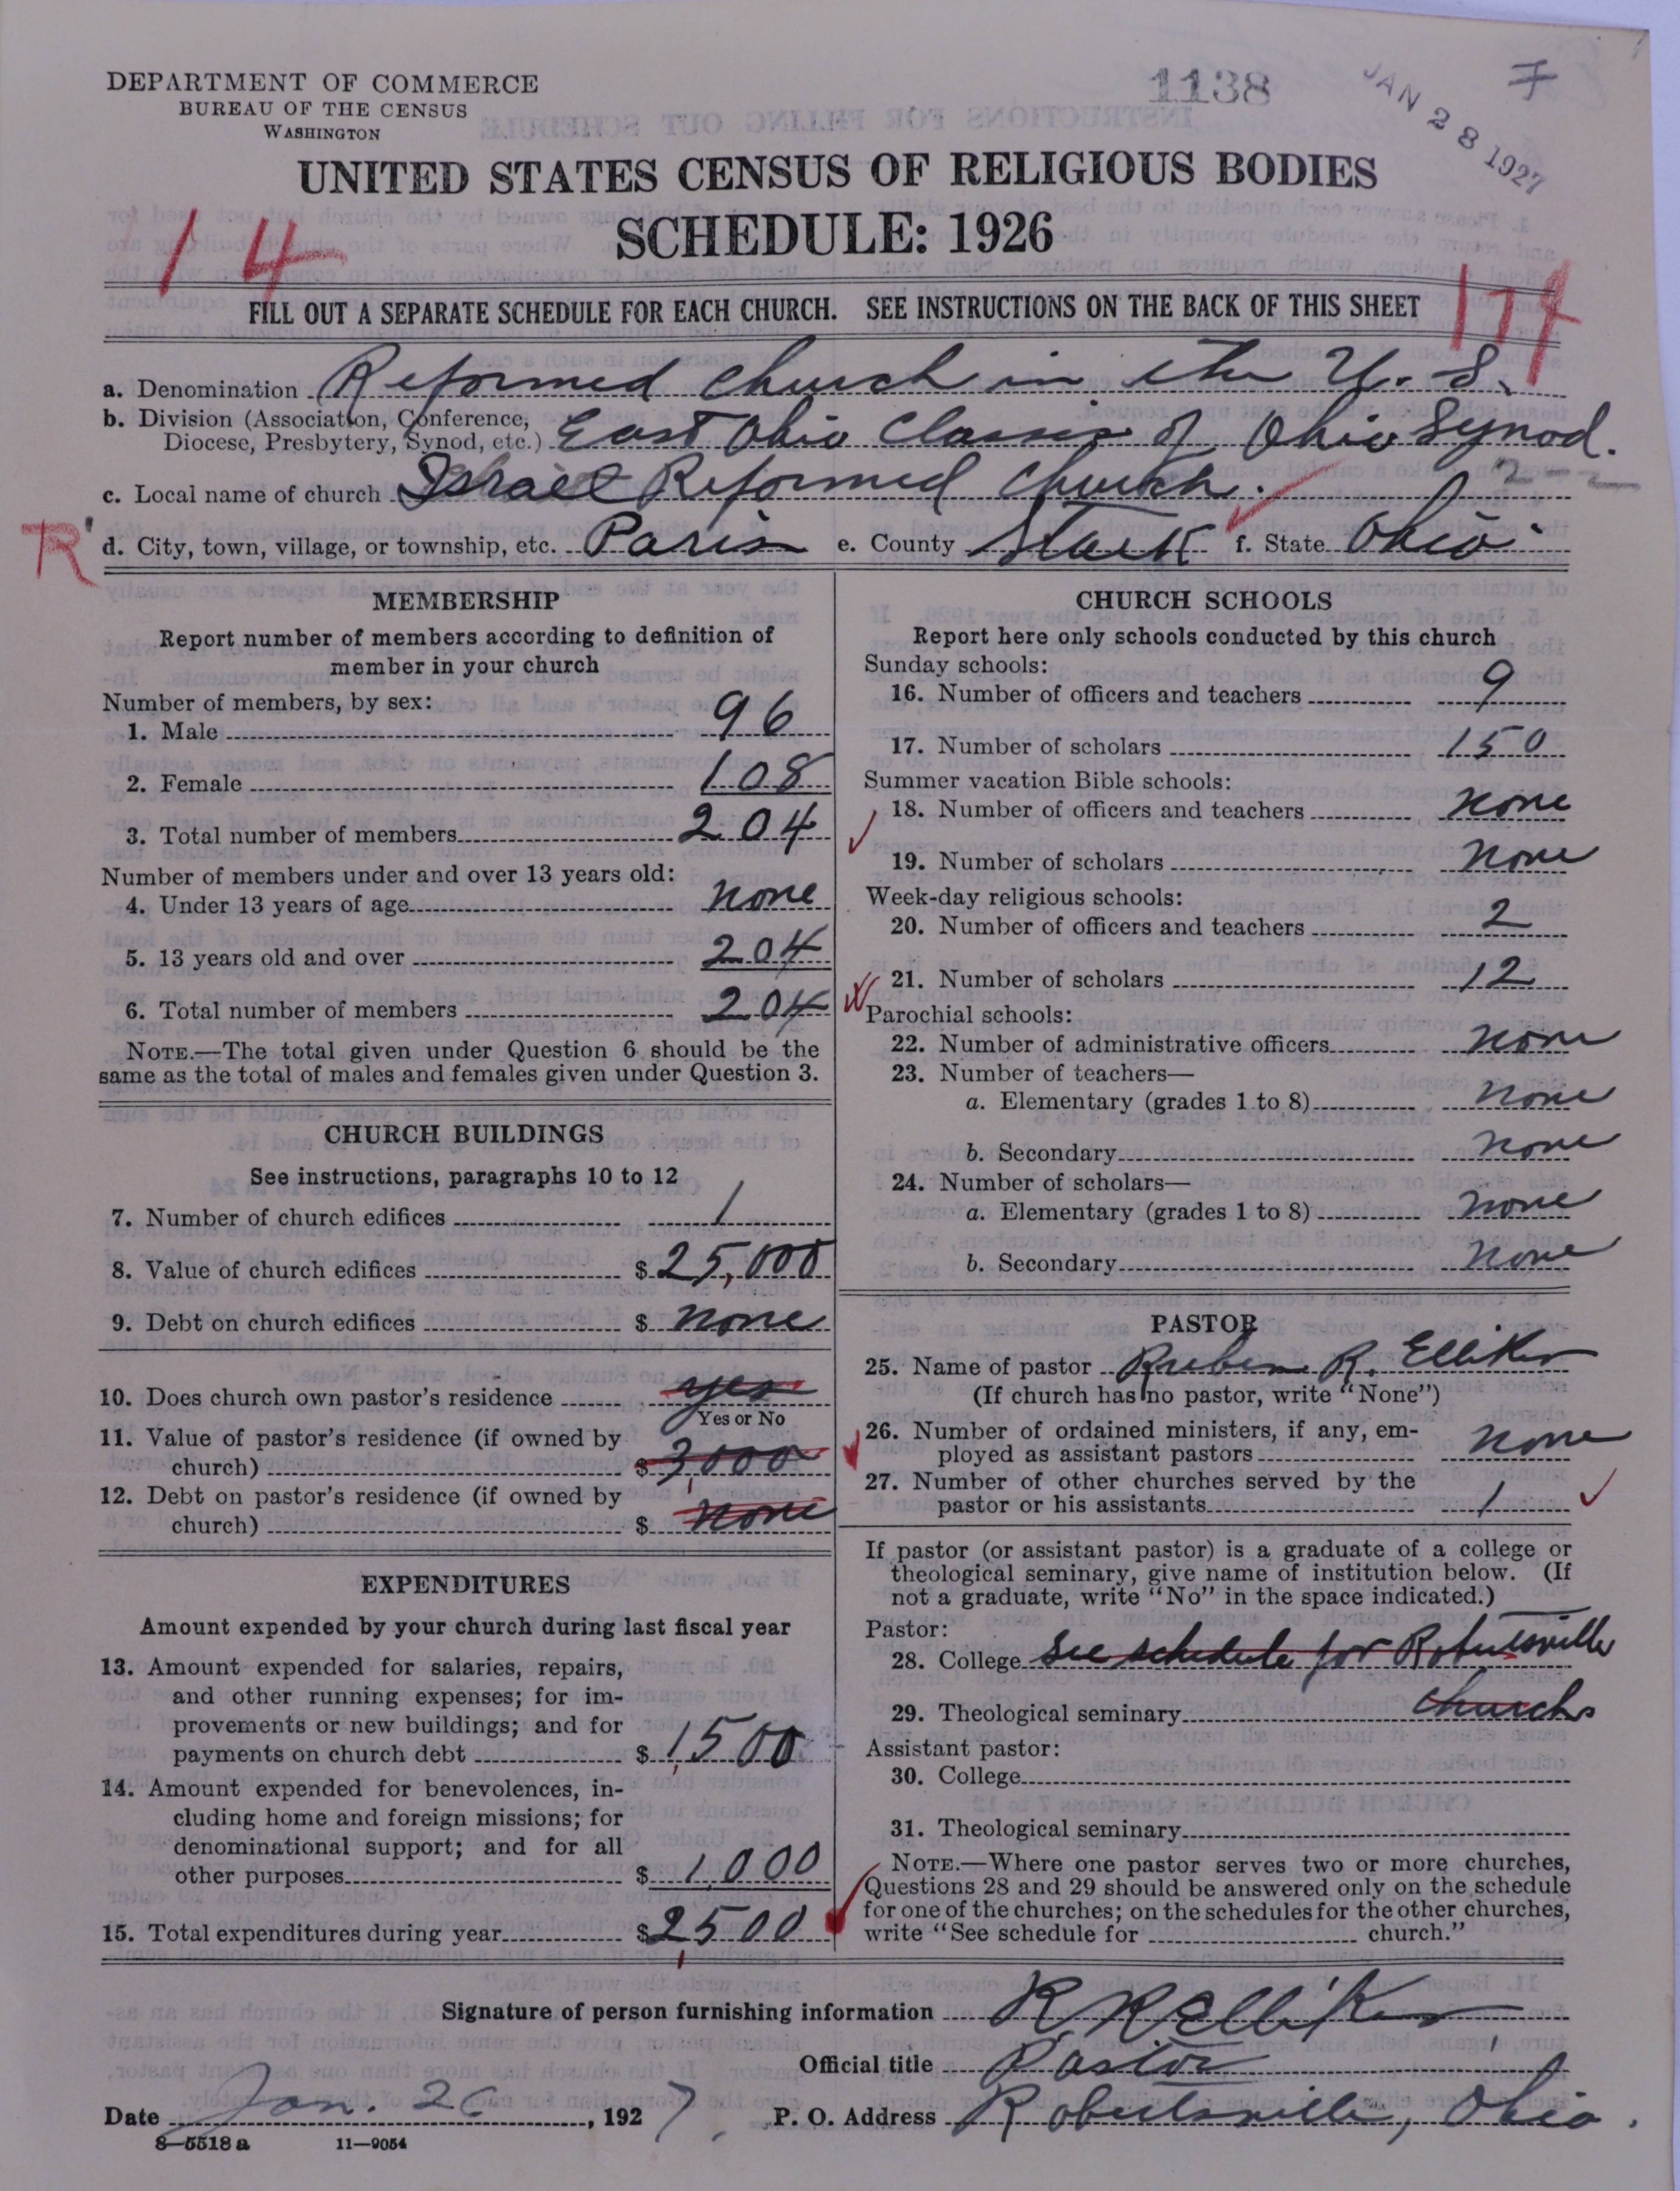 DEPARTMENT OF COMMERCE
BUREAU OF THE CENSUS
WASHINGTON
1138
JAN 28 1927
7
UNITED STATES CENSUS OF RELIGIOUS BODIES
SCHEDULE: 1926
14
FILL OUT A SEPARATE SCHEDULE FOR EACH CHURCH. SEE INSTRUCTIONS ON THE BACK OF THIS SHEET
174
a. Denomination Reformed Church in the U. S.
b. Division (Association, Conference,
Diocese, Presbytery, Synod, etc.) East Ohio Classis of Ohio Synod.
c. Local name of church Israel Reformed Church.
R d. City, town, village, or township, etc. Paris e. County Stark f. State Ohio
MEMBERSHIP
Report number of members according to definition of
member in your church
Number of members, by sex:
1. Male 96
2. Female 108
3. Total number of members 204
Number of members under and over 13 years old:
4. Under 13 years of age none
5. 13 years old and over 204
6. Total number of members 204
NOTE.—The total given under Question 6 should be the
same as the total of males and females given under Question 3.
CHURCH BUILDINGS
See instructions, paragraphs 10 to 12
7. Number of church edifices 1
8. Value of church edifices $ 25,000
9. Debt on church edifices $ none
10. Does church own pastor's residence yes
Yes or No
11. Value of pastor's residence (if owned by
church) $ 3,000
12. Debt on pastor's residence (if owned by
church) $ none
EXPENDITURES
Amount expended by your church during last fiscal year
13. Amount expended for salaries, repairs,
and other running expenses; for im-
provements or new buildings; and for
payments on church debt $ 1,500
14. Amount expended for benevolences, in-
cluding home and foreign missions; for
denominational support; and for all
other purposes $ 1,000
15. Total expenditures during year $ 2,500
CHURCH SCHOOLS
Report here only schools conducted by this church
Sunday schools:
16. Number of officers and teachers 9
17. Number of scholars 150
Summer vacation Bible schools:
18. Number of officers and teachers none
19. Number of scholars none
Week-day religious schools:
20. Number of officers and teachers 2
21. Number of scholars 12
Parochial schools:
22. Number of administrative officers none
23. Number of teachers—
a. Elementary (grades 1 to 8) none
b. Secondary none
24. Number of scholars—
a. Elementary (grades 1 to 8) none
b. Secondary none
PASTOR
25. Name of pastor Ruben R. Elliker
(If church has no pastor, write "None")
26. Number of ordained ministers, if any, em-
ployed as assistant pastors none
27. Number of other churches served by the
pastor or his assistants 1
If pastor (or assistant pastor) is a graduate of a college or
theological seminary, give name of institution below. (If
not a graduate, write "No" in the space indicated.)
Pastor:
28. College See schedule for Robertsville
29. Theological seminary Church
Assistant pastor:
30. College
31. Theological seminary
NOTE.—Where one pastor serves two or more churches,
Questions 28 and 29 should be answered only on the schedule
for one of the churches; on the schedules for the other churches,
write "See schedule for church."
Signature of person furnishing information R R Elliker
Official title Pastor
Date Jan. 26, 1927. P. O. Address Robertsville, Ohio.
8—5518 a 11—9054